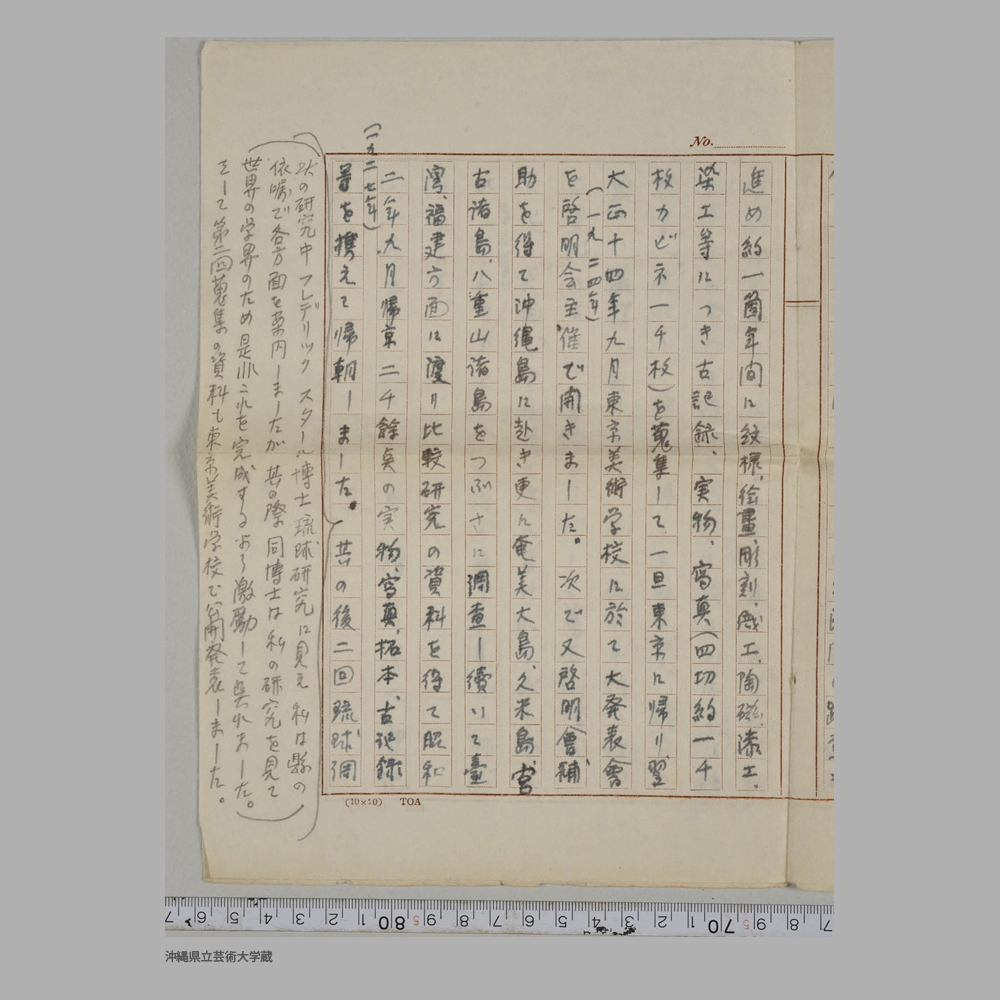 No.
進め約一箇年間に紋様、絵畫、彫刻、織工、陶磁、漆工、
染工等につき古記録、実物、寫真(四切約一千
枚カビネ一千枚)を蒐集して一旦東京に帰り翌
大正十四年九月東京美術学校に於て大発表會
(一九二四年)
を啓明会主催で開きました。次で又啓明會補
助を得て沖縄島に赴き更に奄美大島、久米島、宮
古諸島、八重山諸島をつぶさに調査し續いて臺
湾、福建方面に渡り比較研究の資料を得て昭和
二年九月帰京二千餘点の実物、寫真、拓本、古記録
(一九二七年)
等を携えて帰朝しました。其の後二回琉球調
次の研究中フレデリックスタール博士琉球研究に見え私は縣の
依嘱で各方面を案内しましたが其の際同博士は私の研究を見て
世界の学界のため是非これを完成するよう激励して呉れました。
そして第二回蒐集の資料も東京美術学校で公開発表しました。
(10×20) TOA
7 6 5 4 3 2 1 80 9 8 7 6 5 4 3 2 1 70 9 8 7
沖縄県立芸術大学蔵